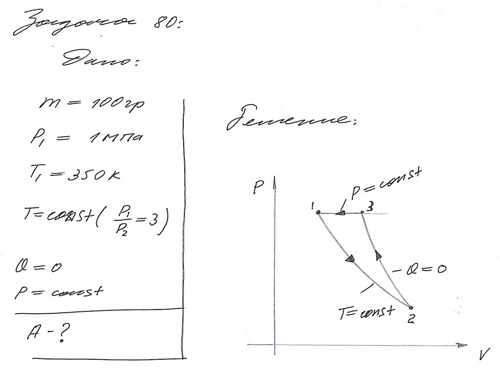 Задача 80:
Дано:
m = 100гр
P₁ = 1мпа
T₁ = 350к
T = const ( P₁/P₂ = 3 )
Q = 0
P = const
A - ?
Решение:
P
P = const
1
3
Q = 0
T = const
2
V